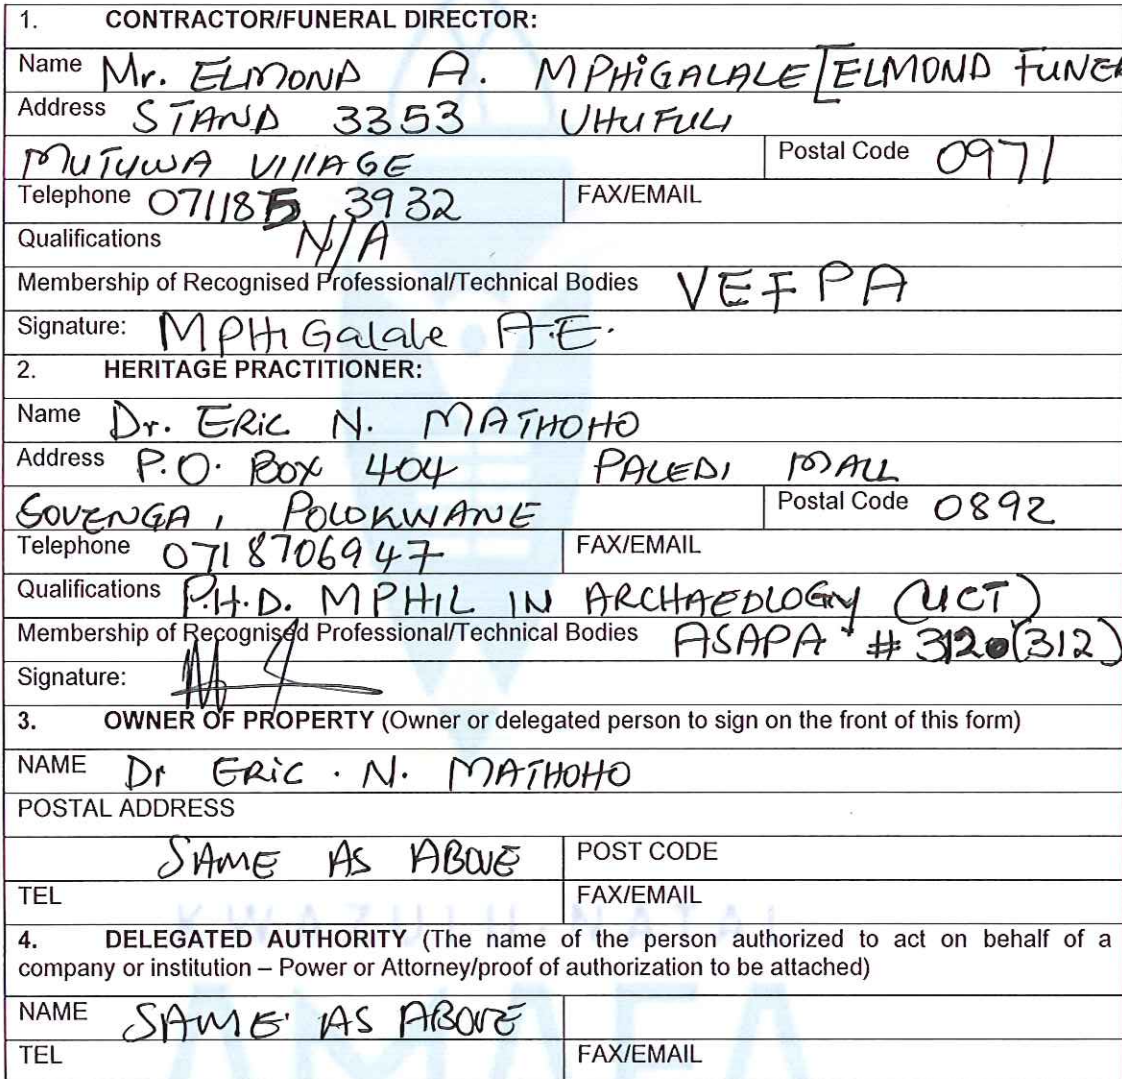 1. CONTRACTOR/FUNERAL DIRECTOR:
Name Mr. ELMOND A. MPHIGALALE [ELMOND FUNER
Address STAND 3353 VHUFULI
MUTUWA VILLAGE Postal Code 0971
Telephone 071185 3932 FAX/EMAIL
Qualifications N/A
Membership of Recognised Professional/Technical Bodies VEFPA
Signature: MPHIGalale A.E.
2. HERITAGE PRACTITIONER:
Name Dr. ERIC N. MATHOHO
Address P.O. BOX 404 PALEDI MALL
SOVENGA, POLOKWANE Postal Code 0892
Telephone 0718706947 FAX/EMAIL
Qualifications P.H.D. MPHIL IN ARCHAEOLOGY (UCT)
Membership of Recognised Professional/Technical Bodies ASAPA # 3120(312)
Signature:
3. OWNER OF PROPERTY (Owner or delegated person to sign on the front of this form)
NAME Dr ERIC . N. MATHOHO
POSTAL ADDRESS
SAME AS ABOVE POST CODE
TEL FAX/EMAIL
KWAZULU-NATAL
4. DELEGATED AUTHORITY (The name of the person authorized to act on behalf of a
company or institution – Power or Attorney/proof of authorization to be attached)
AMAFA
NAME SAME AS ABOVE
TEL FAX/EMAIL